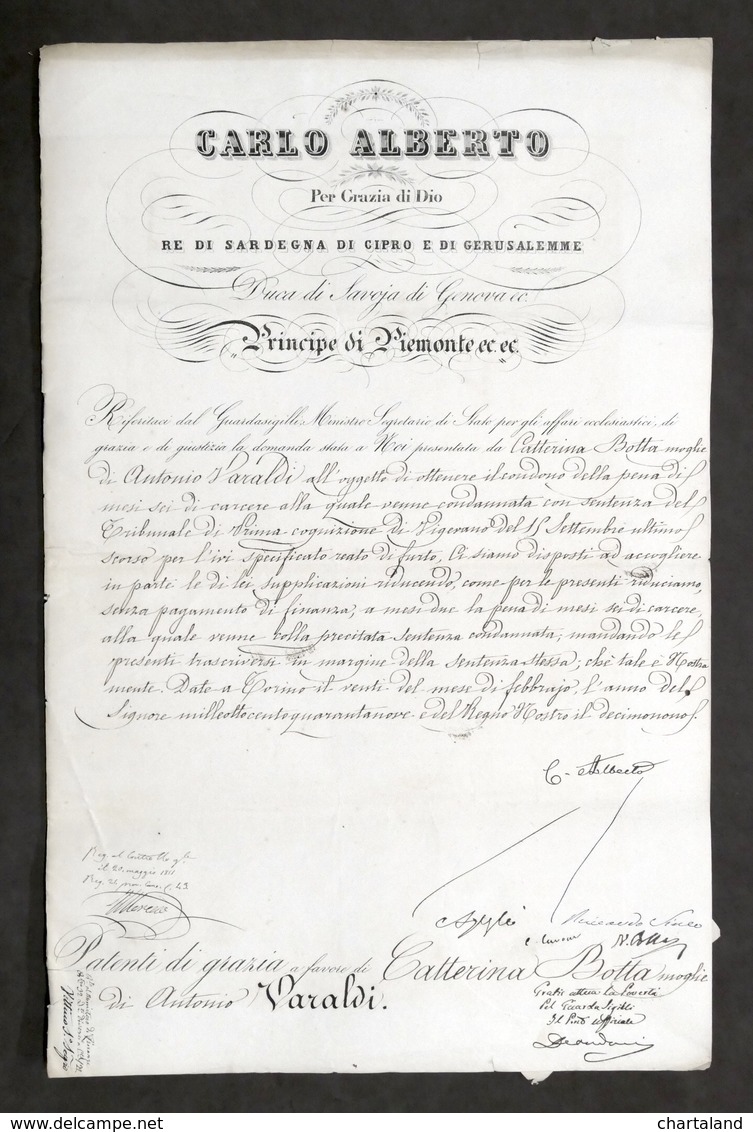 CARLO ALBERTO
Per Grazia di Dio
RE DI SARDEGNA DI CIPRO E DI GERUSALEMME
Duca di Savoja di Genova ec.
Principe di Piemonte ec. ec.
Riferitaci dal Guardasigilli Ministro Segretario di Stato per gli affari ecclesiastici, di
grazia e di giustizia la domanda stata a Noi presentata da Catterina Botta moglie
di Antonio Varaldi all'oggetto di ottenere il condono della pena di
mesi sei di carcere alla quale venne condannata con sentenza del
Tribunale di Prima cognizione di Vigevano del 15 Settembre ultimo
scorso per l'ivi specificato reato di furto, Ci siamo disposti ad accogliere
in parte le di lei supplicazioni riducendo, come per le presenti riduciamo,
senza pagamento di finanza, a mesi due la pena di mesi sei di carcere,
alla quale venne colla precitata sentenza condannata; mandando le
presenti trascriversi in margine della sentenza stessa; chè tale è Nostra
mente. Date a Torino il venti del mese di febbrajo, l'anno del
Signore milleottocentoquarantanove e del Regno Nostro il decimonono.
C. Alberto
Patenti di grazia a favore di Catterina Botta moglie
di Antonio Varaldi.
Gratis attesa la povertà
Pel Guarda Sigilli
Il Primo Uffiziale
chartaland